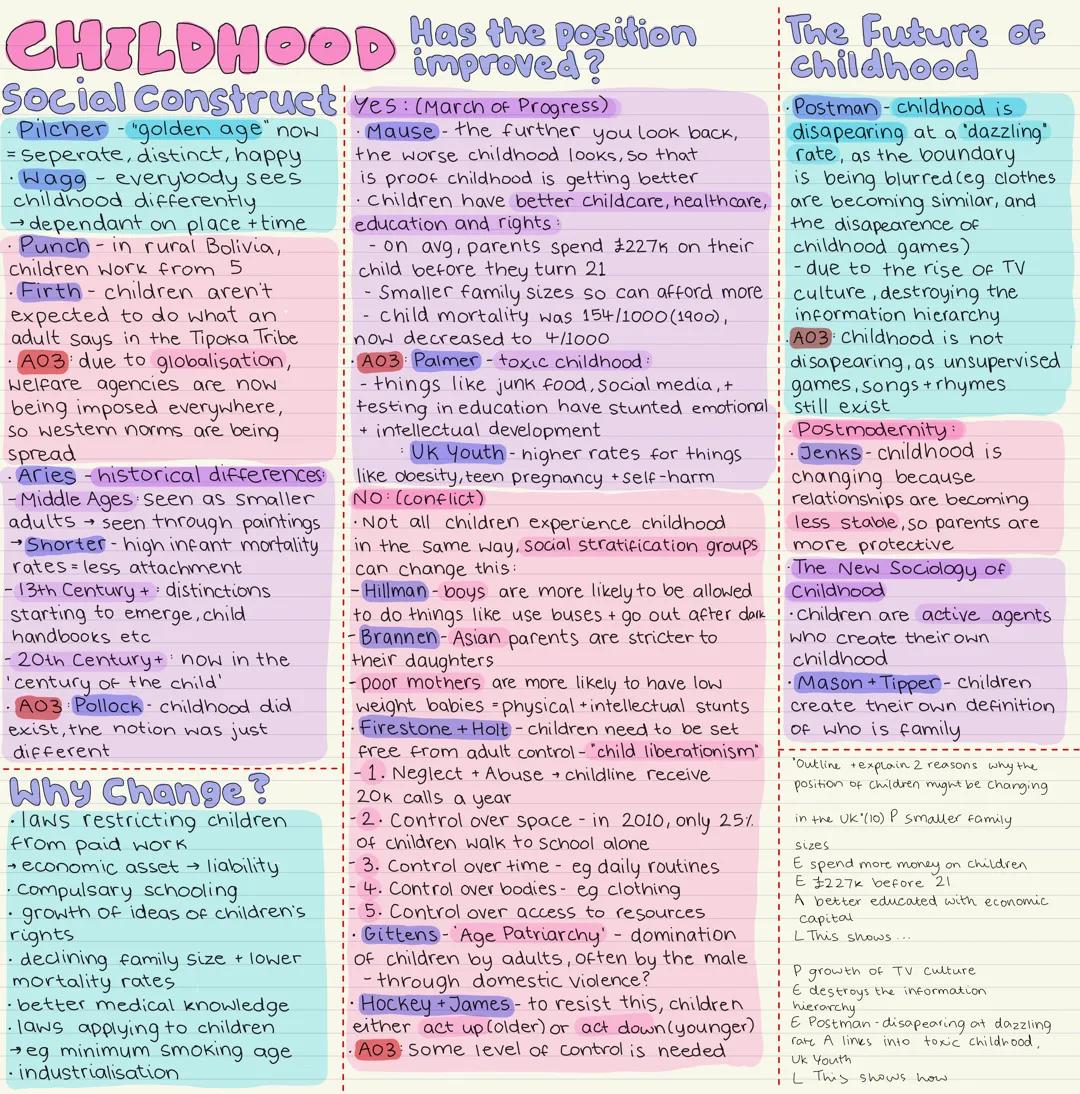 CHILDHOOD
Social Construct
· Pilcher - "golden age" now
= seperate, distinct, happy
· Wagg - everybody sees
childhood differently
→ dependant on place + time
· Punch - in rural Bolivia,
children work from 5
· Firth - children aren't
expected to do what an
adult says in the Tipoka Tribe
· A03: due to globalisation,
welfare agencies are now
being imposed everywhere,
so western norms are being
spread
· Aries - historical differences:
- Middle Ages: seen as smaller
adults → seen through paintings
→ Shorter - high infant mortality
rates = less attachment
- 13th Century +: distinctions
starting to emerge, child
handbooks etc
- 20th Century+: now in the
'century of the child'
· A03: Pollock - childhood did
exist, the notion was just
different
Why Change?
· laws restricting children
from paid work
→ economic asset → liability
· compulsary schooling
· growth of ideas of children's
rights
· declining family size + lower
mortality rates
· better medical knowledge
· laws applying to children
→ eg minimum smoking age
· industrialisation
Has the position
improved?
Yes: (March of Progress)
· Mause - the further you look back,
the worse childhood looks, so that
is proof childhood is getting better
· Children have better childcare, healthcare,
education and rights:
- on avg, parents spend £227k on their
child before they turn 21
- Smaller family sizes so can afford more
- child mortality was 154/1000 (1900),
now decreased to 4/1000
· A03: Palmer - toxic childhood:
- things like junk food, social media, +
testing in education have stunted emotional
+ intellectual development
: UK Youth - higher rates for things
like obesity, teen pregnancy + self-harm
NO: (conflict)
· Not all children experience childhood
in the same way, social stratification groups
can change this:
- Hillman - boys are more likely to be allowed
to do things like use buses + go out after dark
- Brannen - Asian parents are stricter to
their daughters
- poor mothers are more likely to have low
weight babies = physical + intellectual stunts
· Firestone + Holt - children need to be set
free from adult control - "child liberationism"
- 1. Neglect + Abuse → childline receive
20k calls a year
- 2. Control over space - in 2010, only 25%
of children walk to school alone
- 3. Control over time - eg daily routines
- 4. Control over bodies - eg clothing
- 5. Control over access to resources
· Gittens - 'Age Patriarchy' - domination
of children by adults, often by the male
- through domestic violence?
· Hockey + James - to resist this, children
either act up (older) or act down (younger)
· A03: Some level of control is needed
The Future of
childhood
· Postman - childhood is
disapearing at a "dazzling"
rate, as the boundary
is being blurred (eg clothes
are becoming similar, and
the disapearence of
childhood games)
- due to the rise of TV
culture, destroying the
information hierarchy
A03: Childhood is not
disapearing, as unsupervised
games, songs + rhymes
still exist
· Postmodernity:
· Jenks - childhood is
changing because
relationships are becoming
less stable, so parents are
more protective
· The New Sociology of
Childhood
· Children are active agents
who create their own
childhood
· Mason + Tipper - children
create their own definition
of who is family
"Outline + explain 2 reasons why the
position of children might be changing
in the UK"(10) P smaller family
sizes
E spend more money on children
E £227k before 21
A better educated with economic
capital
L This shows ...
P growth of TV culture
E destroys the information
hierarchy
E Postman - disapearing at dazzling
rate A links into toxic childhood,
UK Youth
L This shows how